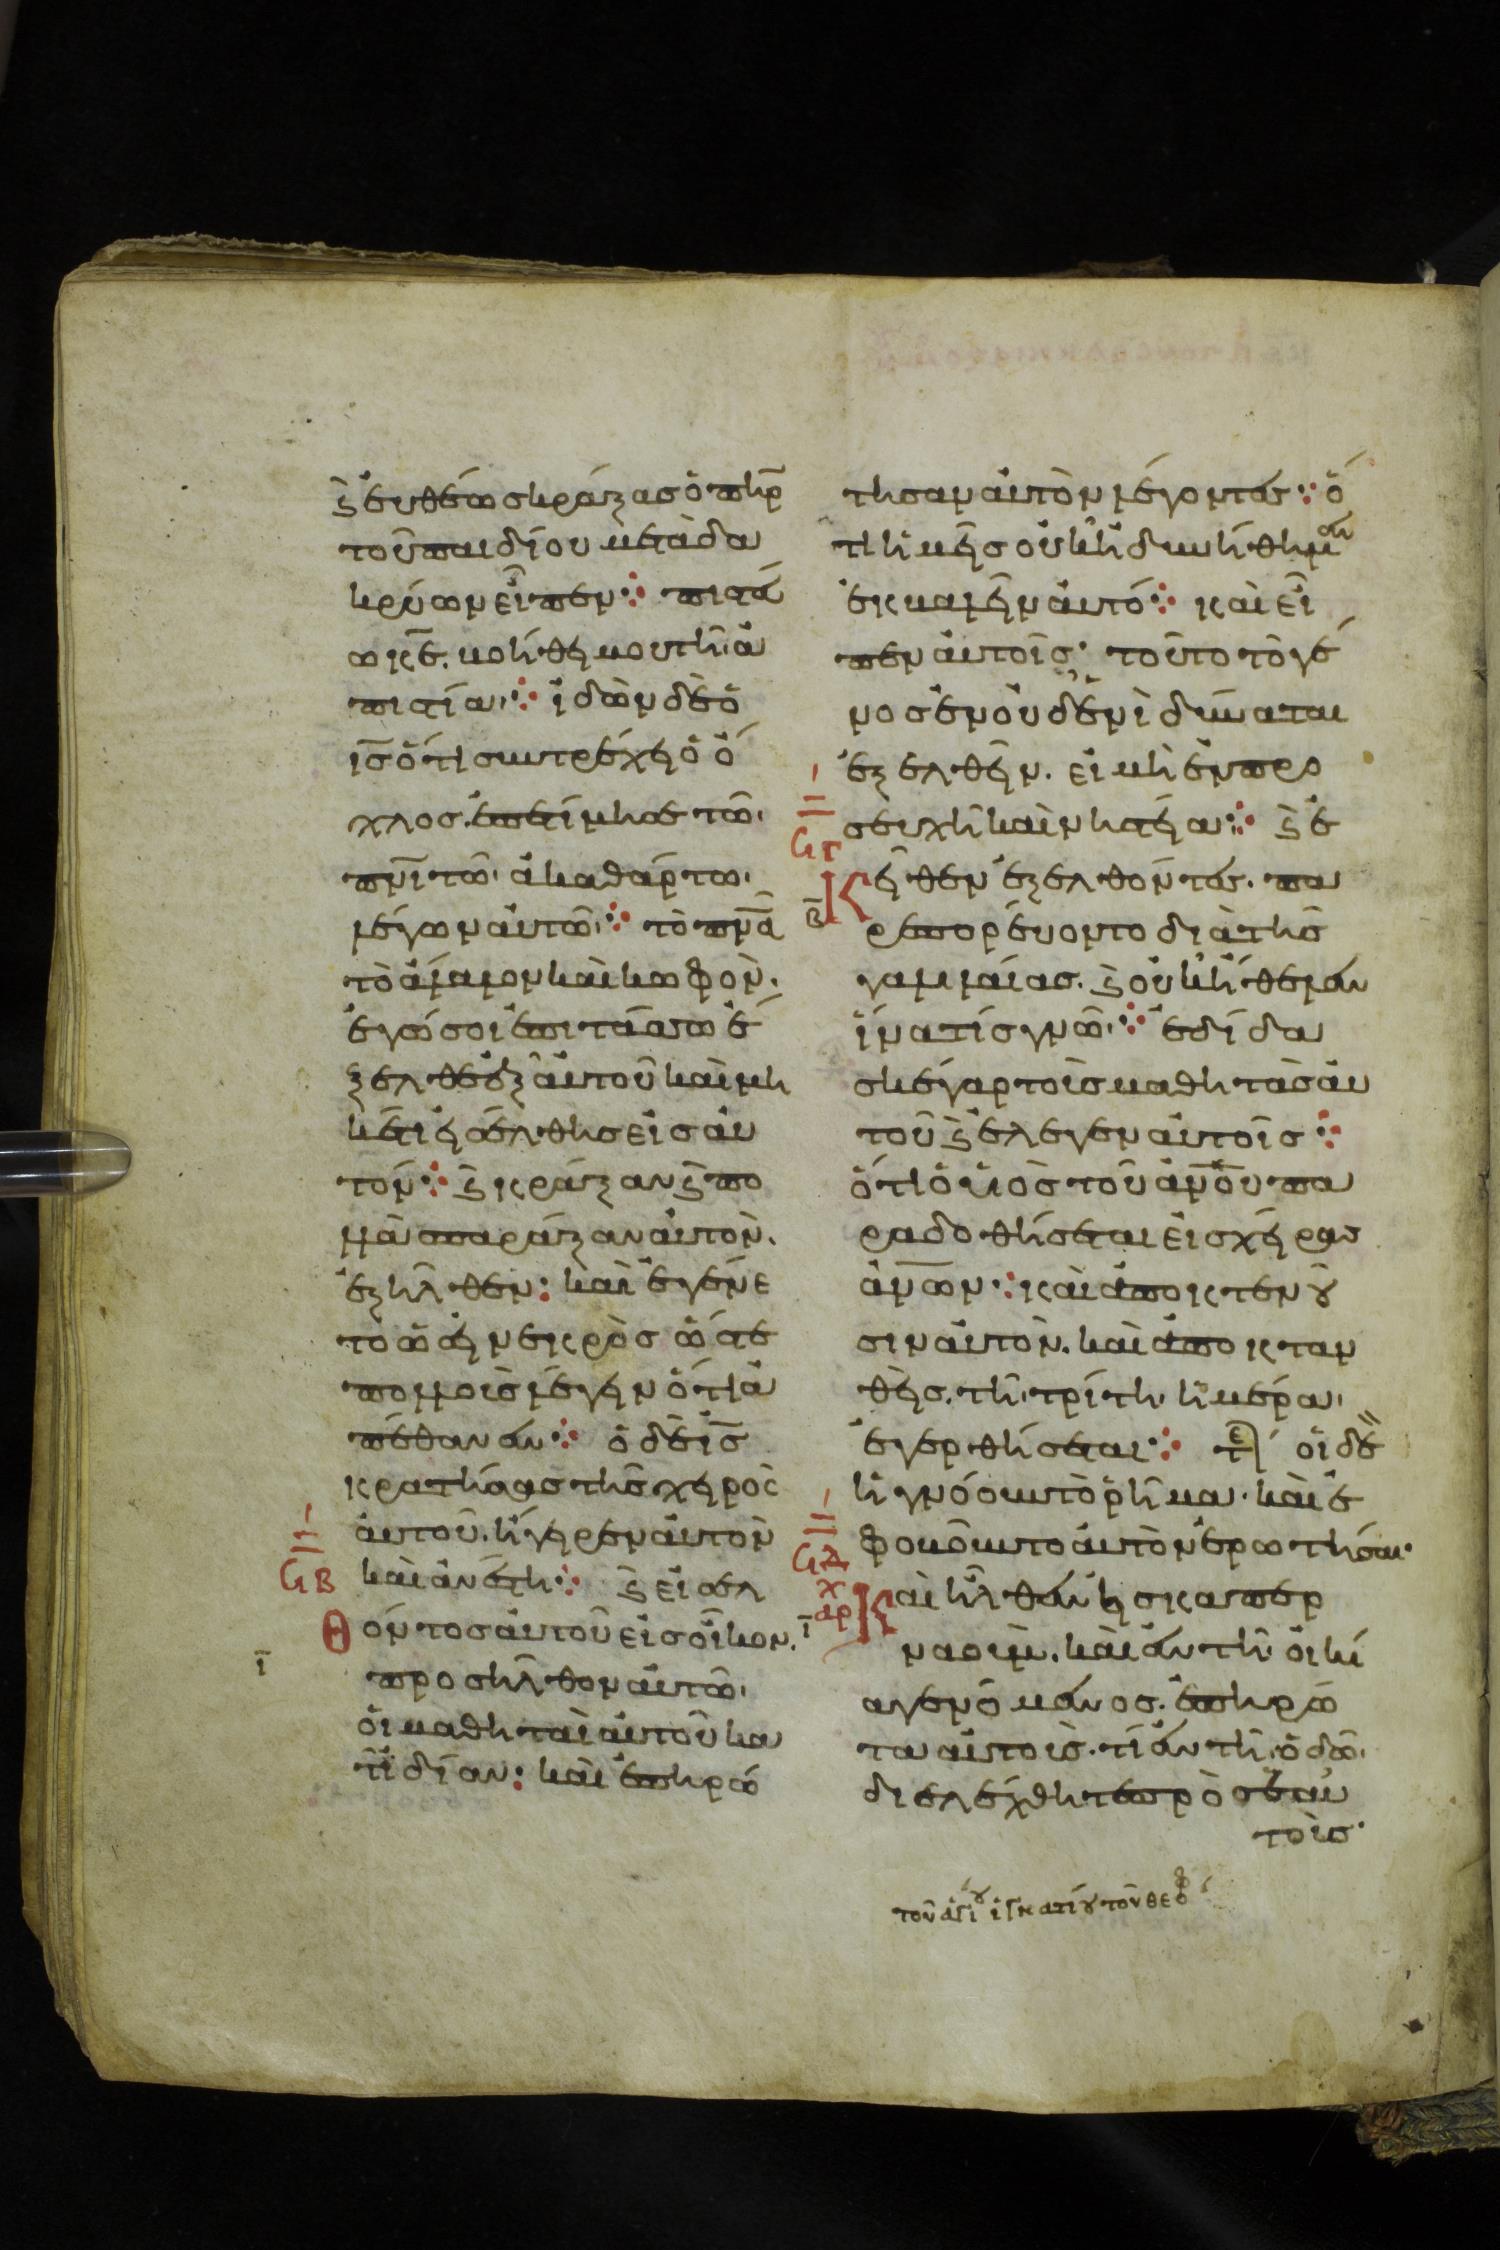 ϗ εὐθέως κράξας ὁ πηρ
τοῦ παιδίου μετὰ δα
κρύων εἶπεν· πιστεύ
ω κε. βοήθει μου τῆ ἀ
πιστία· ἰδὼν δὲ ὁ
ις ὅτι συντρέχει ὁ ὄ
χλος. ἐπετίμησε τῶ
πνι τῶ ἀκαθάρτω.
λέγων αὐτῶ· τὸ πνα
τὸ ἄλαλον καὶ κωφὸν.
ἐγώ σοι ἐπιτάσσω ἔ
ξελθε ἐξ αὐτοῦ καὶ μη
κέτι εἰσέλθης εἰς αυ
τόν· ϗ κράξαν ϗ πο
λλὰ σπαράξαν αὐτὸν.
ἐξῆλθεν: καὶ ἐγένε
το ὡσεὶ νεκρὸς ὥστε
πολλοὺς λέγειν ὅτι ἀ
πέθανεν· ὁ δὲ ις
κρατήσας τῆς χειρὸς
αὐτοῦ. ἤγειρεν αὐτὸν
καὶ ἀνέστη· ϗ εἰσελ
θόντος αὐτοῦ εἰς οἶκον.
προσῆλθον αὐτῶ
οἱ μαθηταὶ αὐτοῦ κα
τ ἰδίαν: καὶ ἐπηρώ
τησαν αὐτὸν λέγοντες· ὅ
τι ἡμεῖς οὐκ ἠδυνήθημεν
ἐκβαλεῖν αὐτό· καὶ εἶ
πεν αὐτοῖς· τοῦτο τὸ γέ
νος ἐν οὐδενὶ δύναται
ἐξελθεῖν. εἰ μὴ ἐν προ
σευχῆ καὶ νηστεία· ϗ ἐ
κεῖθεν ἐξελθόντες. πα
ρεπορεύοντο διὰ τῆς
γαλιλαίας. ϗ οὐκ ἤθελεν
ἵνα τίς γνῶ· ἐδίδα
σκε γὰρ τοὺς μαθητὰς αὐ
τοῦ ϗ ἔλεγεν αὐτοῖς·
ὅτι ὁ υἱὸς τοῦ ἀνου πα
ραδοθήσεται εἰς χεῖρας
ἀνων· καὶ ἀποκτενοῦ
σιν αὐτὸν. καὶ ἀποκταν
θεὶς. τῆ τρίτη ἡμέρα
ἐγερθήσεται· τε οἱ δὲ
ἠγνόουν τὸ ῥῆμα. καὶ ἐ
φοβοῦντο αὐτὸν ἐρωτῆσαι·
Καὶ ἦλθεν εἰς καπερ
ναούμ. καὶ ἐν τῆ οἰκί
α γενόμενος. ἐπηρώ
τα αὐτοὺς. τί ἐν τῆ ὁδῶ
διελέχθητε πρὸς ἑαυ
τοὺς·
τοῦ ἁγίου ἰγνατίου τοῦ θεοφό